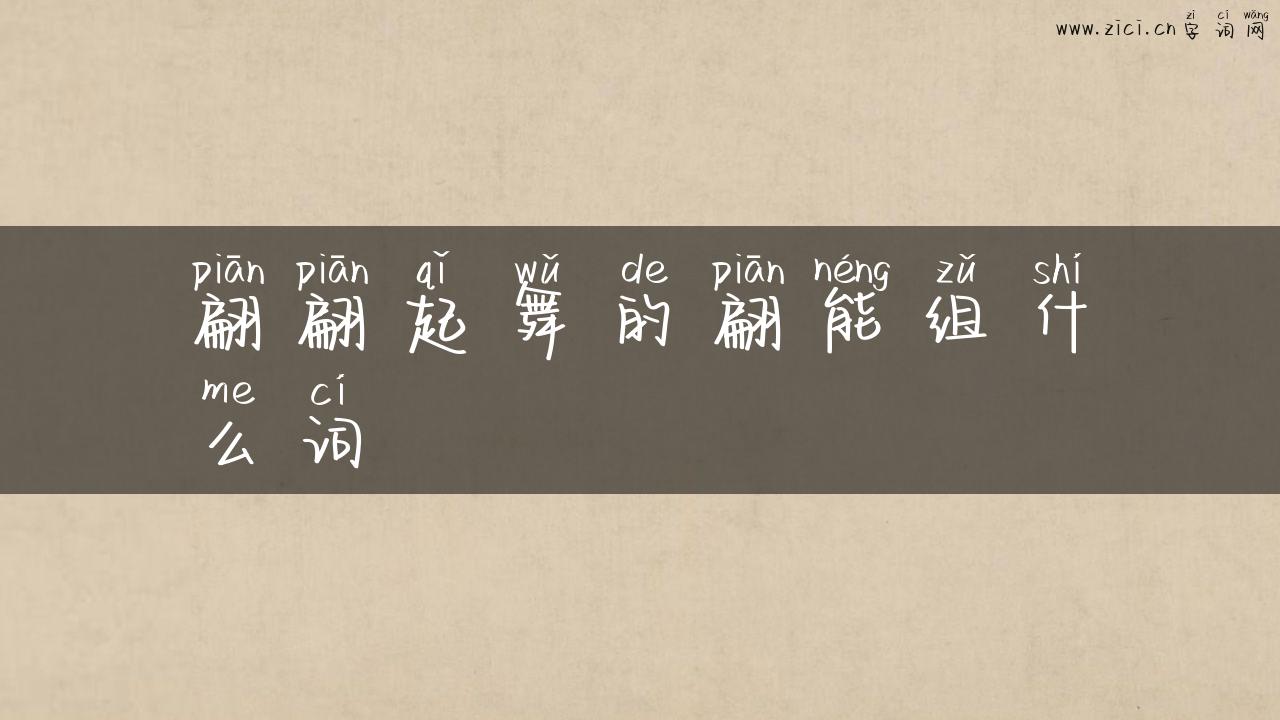 zì cí wǎng
www.zici.cn 字 词 网
piān piān qǐ wǔ de piān néng zǔ shí
翩 翩 起 舞 的 翩 能 组 什
me cí
么 词